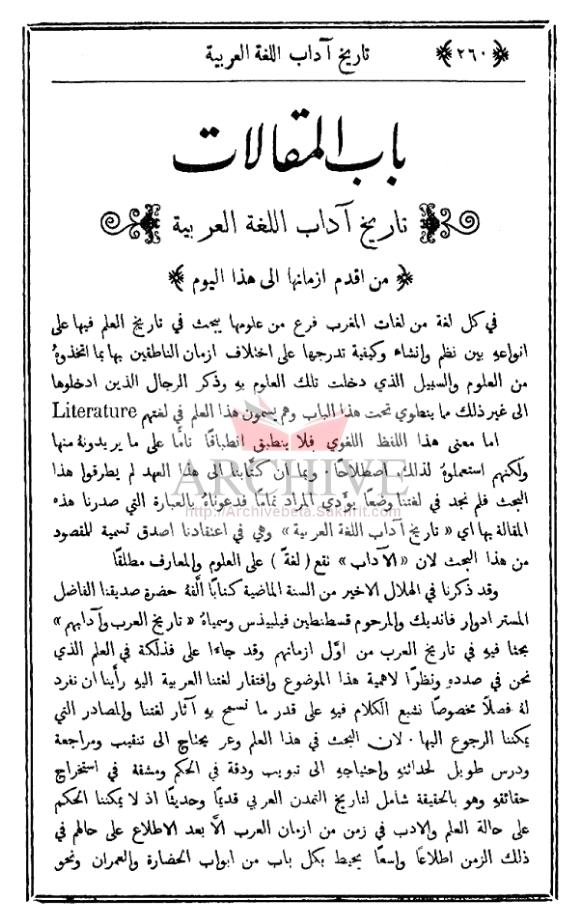 ﴿٢٦٠﴾ تاريخ آداب اللغة العربية
باب المقالات
تاريخ آداب اللغة العربية
﴿ من اقدم ازمانها الى هذا اليوم ﴾
في كل لغة من لغات المغرب فرع من علومها يبحث في تاريخ العلم فيها على
انواعه بين نظم وإنشاء وكيفية تدرجها على اختلاف ازمان الناطقين بها بما اتخذوهُ
من العلوم والسبيل الذي دخلت تلك العلوم بهِ وذكر الرجال الذين ادخلوها
الى غير ذلك ما ينطوي تحت هذا الباب وهم يسمون هذا العلم في لغتهم Literature
اما معنى هذا اللفظ اللغوي فلا ينطبق انطباقًا تامًّا على ما يريدونهُ منها
ولكنهم استعملوهُ لذلك اصطلاحًا. وبما ان كتَّابنا الى هذا العهد لم يطرقوا هذا
البحث فلم نجد في لغتنا وضعًا يؤَدي المراد تمامًا فدعوناهُ بالعبارة التي صدرنا هذه
المقالة بها اي «تاريخ آداب اللغة العربية» وهي في اعتقادنا اصدق تسمية للمقصود
من هذا البحث لان «الآداب» تقع (لغةً) على العلوم والمعارف مطلقًا
وقد ذكرنا في الهلال الاخير من السنة الماضية كتابًا الَّفهُ حضرة صديقنا الفاضل
المستر ادوار فانديك والمرحوم قسطنطين فيليبيذس وسمياهُ «تاريخ العرب وآدابهم»
بحثا فيهِ في تاريخ العرب من اوَّل ازمانهم وقد جاءا على فذلكة في العلم الذي
نحن في صددهِ ونظرًا لاهمية هذا الموضوع وافتقار لغتنا العربية اليهِ رأينا ان نفرد
لهُ فصلًا مخصوصًا نشبع الكلام فيهِ على قدر ما تسمح بهِ آثار لغتنا والمصادر التي
يمكننا الرجوع اليها. لان البحث في هذا العلم وعر يحتاج الى تنقيب ومراجعة
ودرس طويل لحداثتهِ وإحتياجهِ الى تبويب ودقة في الحكم ومشقة في استخراج
حقائقهِ وهو بالحقيقة شامل لتاريخ التمدن العربي قديمًا وحديثًا اذ لا يمكننا الحكم
على حالة العلم والادب في زمن من ازمان العرب الَّا بعد الاطلاع على حالهم في
ذلك الزمن اطلاعًا واسعًا يحيط بكل باب من ابواب الحضارة والعمران ونحو
ARCHIVE
http://Archivebeta.Sakhrit.com